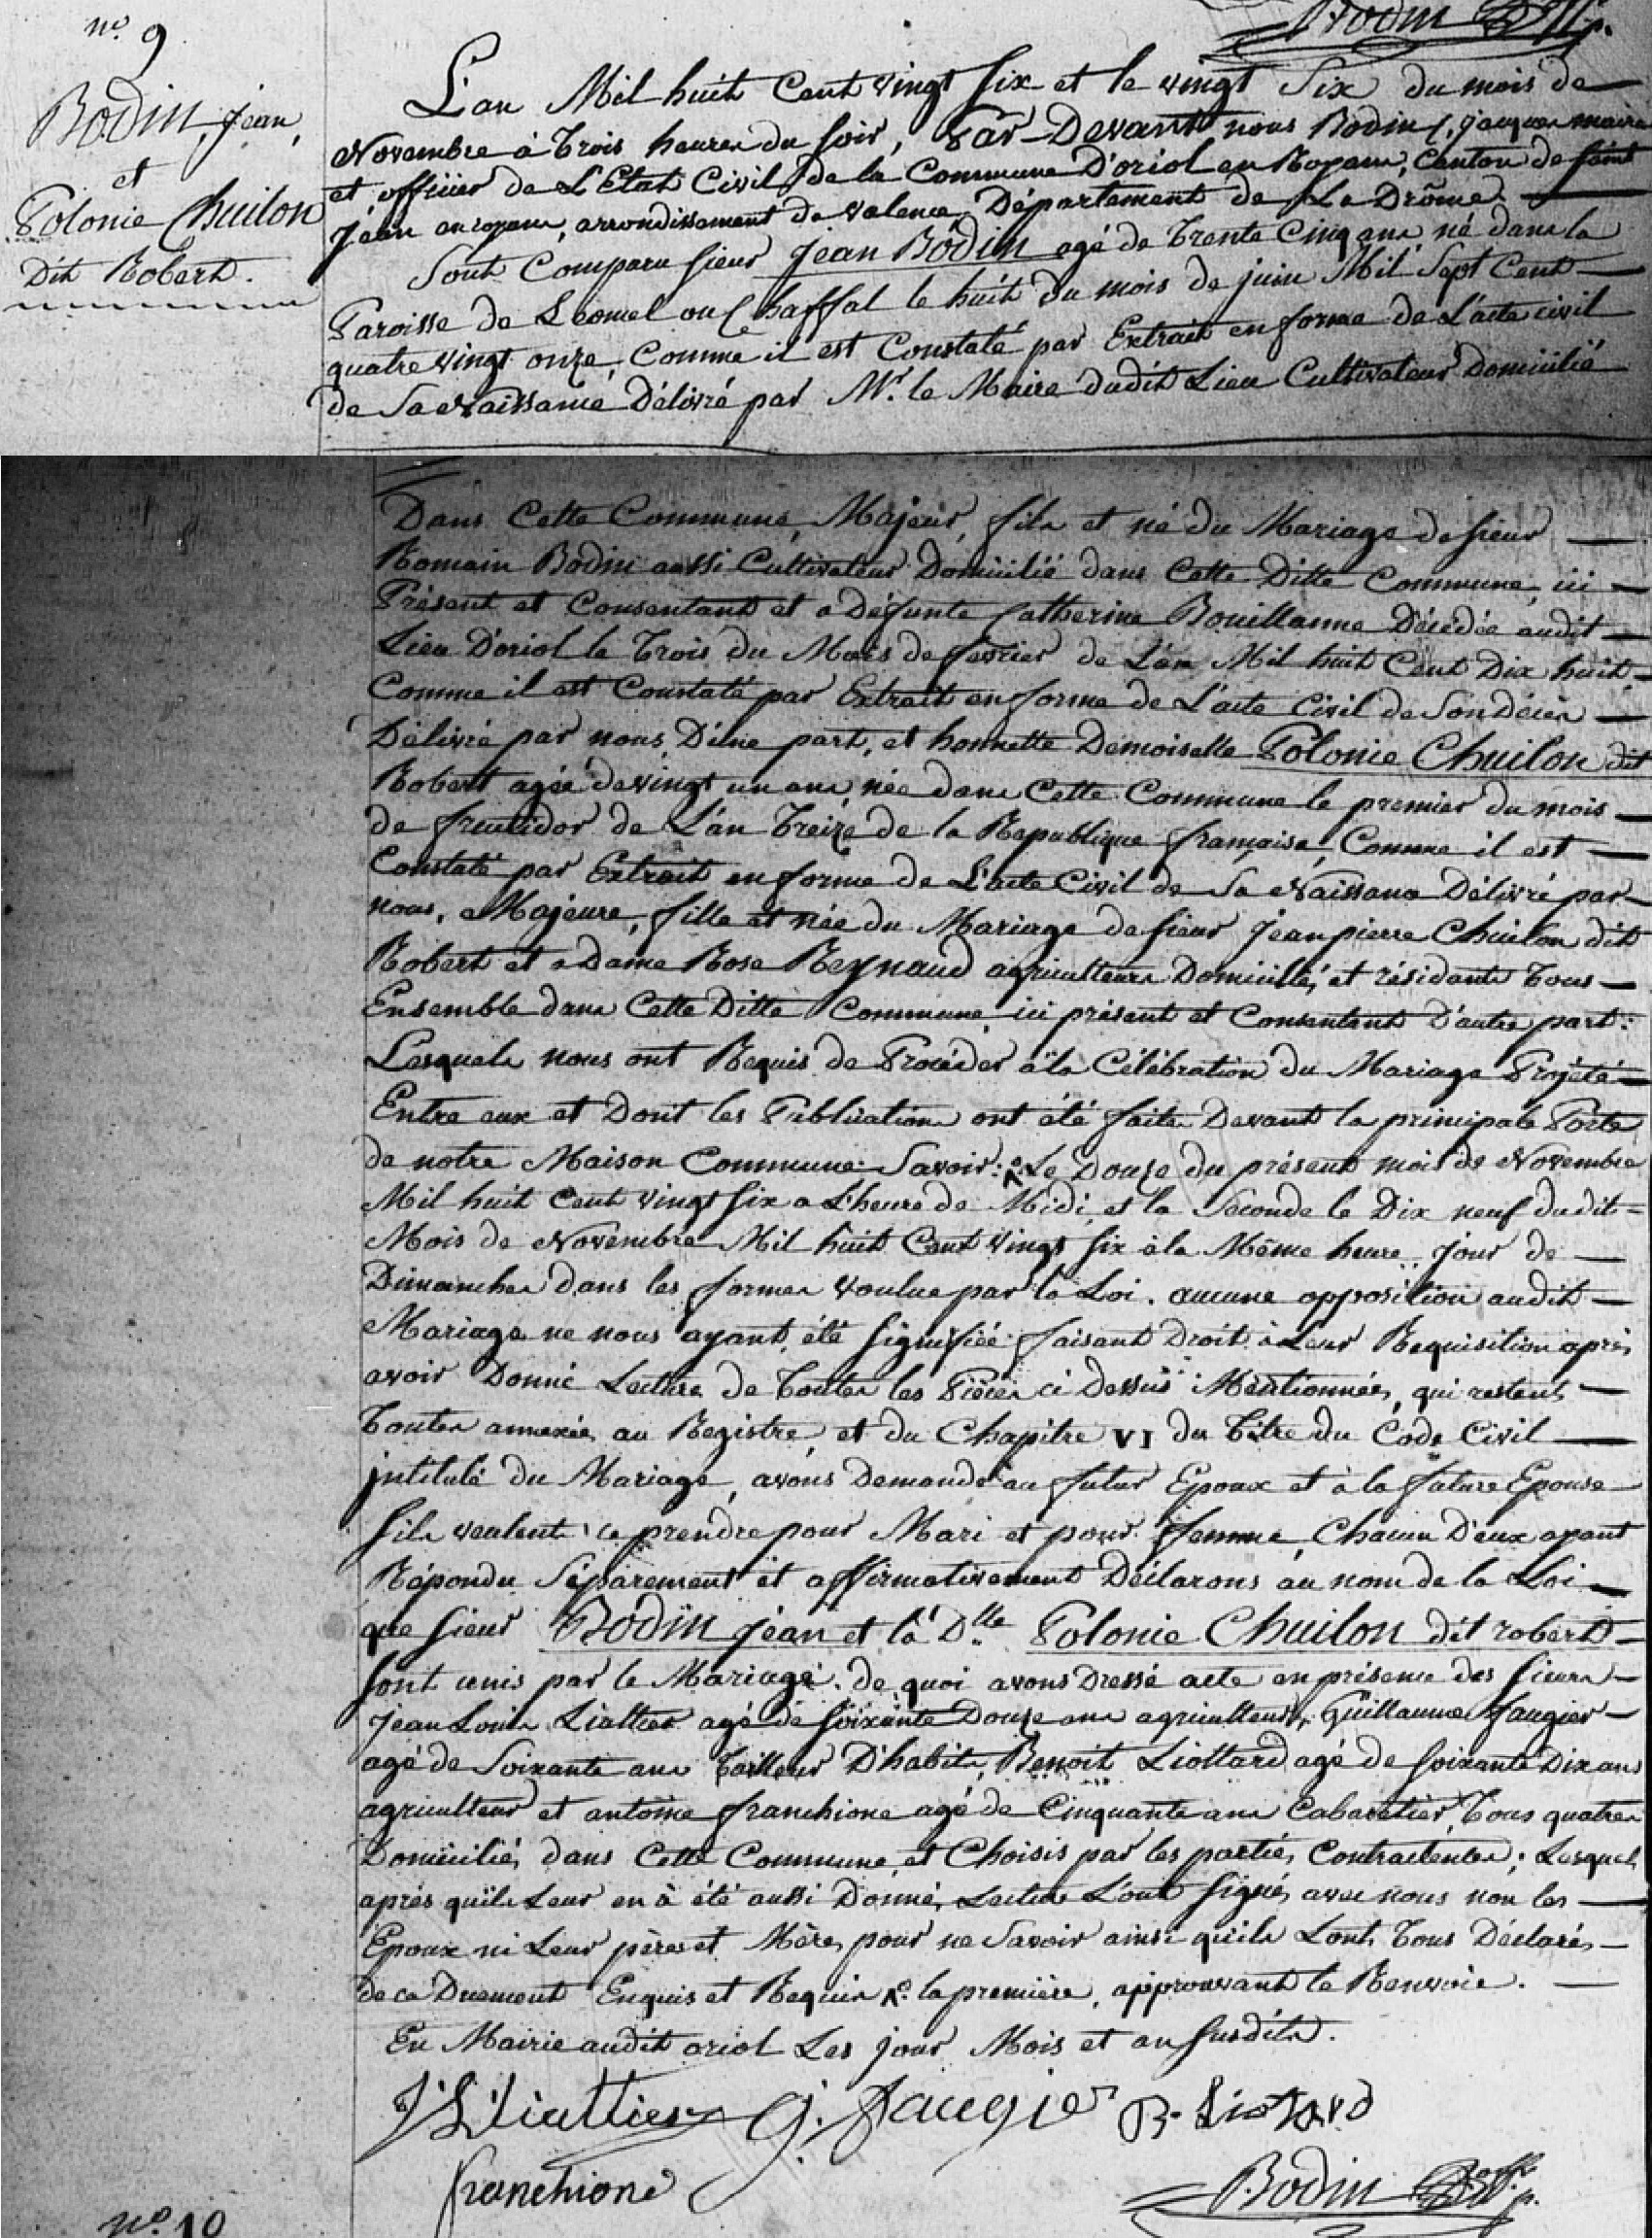 nº. 9
Bodin, Jean,
et
Polonie Chuilon
Dit Robert.
L'an Mil huit Cent vingt six et le vingt Six du mois de
Novembre à Trois heures du Soir, Par-Devant nous Bodin, Jacques maire
et officier de L'Etat Civil de la Commune D'oriol en Royans, Canton de saint
Jean en royans, arrondissement de valence Département de La Drôme.
Sont Comparu sieur Jean Bodin agé de Trente Cinq ans né dans la
Paroisse de Léoncel ou Chaffal le huit du mois de juin Mil Sept Cent
quatre vingt onze, Comme il est Constaté par Extrait en forme de L'acte civil
de Sa Naissance Délivré par Mr. le Maire dudit Lieu Cultivateur Domicilié
Dans Cette Commune, Majeur, fils et né du Mariage de sieur
Romain Bodin aussi Cultivateur Domicilié dans Cette Ditte Commune, ici
Présent et Consentant et a Défunte Catherine Bouillanne Décédée audit
Lieu D'oriol le Trois du Mois de fevrier de L'an Mil huit Cent Dix huit,
Comme il est Constaté par Extrait en forme de L'acte Civil de Son Décès
Délivré par nous, D'une part, et honnette Demoiselle Polonie Chuilon dit
Robert agée de vingt un ans, née dans Cette Commune le premier du mois
de fructidor de L'an Treize de la Republique française, Comme il est
Constaté par Extrait en forme de L'acte Civil de Sa Naissance Délivré par
nous, Majeure, fille et née du Mariage de sieur Jean pierre Chuilon dit
Robert et a Dame Rose Reynaud agriculteurs Domiciliés et résidants Tous
Ensemble dans Cette Ditte Commune ici présent et Consentant D'autre part:
Lesquels nous ont Requis de Procéder à la Célébration du Mariage Projeté
Entre eux et Dont les Publications ont été faites Devant la principale Porte
de notre Maison Commune Savoir: Le Douze du présent mois de Novembre
Mil huit Cent vingt six a L'heure de Midi, et la Seconde le Dix neuf dudit
Mois de Novembre Mil huit Cent vingt six à la Même heure, jour de
Dimanches dans les formes voulues par la Loi. aucune opposition audit
Mariage ne nous ayant été signifiée faisant Droit à Leur Requisition après
avoir Donné Lecture de Toutes les Pièces ci Dessus Mentionnées, qui restent
Toutes annexées au Registre, et du Chapitre VI du Titre du Code Civil
intitulé du Mariage, avons Demandé au futur Epoux et à la future Epouse
s'ils veulent ce prendre pour Mari et pour femme, Chacun D'eux ayant
Répondu Séparement et affirmativement Déclarons au nom de la Loi
que sieur Bodin jean et la Dlle Polonie Chuilon dit robert
sont unis par le Mariage. de quoi avons Dressé acte en présence des sieurs
Jean Louis Liattier agé de soixante Douze ans agriculteur, Guillaume Faugier
agé de Soixante ans Tailleur D'habits, Benoit Liottard agé de soixante Dix ans
agriculteur et antoine franchione agé de Cinquante ans Cabaretier, Tous quatre
Domiciliés dans Cette Commune, et Choisis par les parties Contractantes; Lesquels
après qu'ils Leur en à été aussi Donné Lecture L'ont signés avec nous non les
Epoux ni Leur pères et Mères pour ne Savoir ainsi qu'ils L'ont Tous Déclarés
de ce Duement Enquis et Requis. la première, approuvant le Renvoie.
En Mairie audit oriol Les jour Mois et an susdits.
J L Liattier G. Faugier B. Liotard
franchione Bodin
nº 10